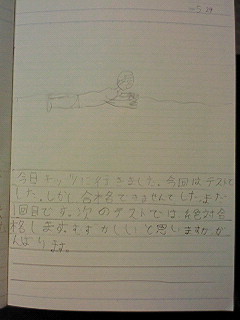 今日キッツに行きました。今回はテストで
した。しかし合格できませんでした。また
1回目です。次のテストでは絶対合
格します。むずかしいと思いますが、が
んばります。